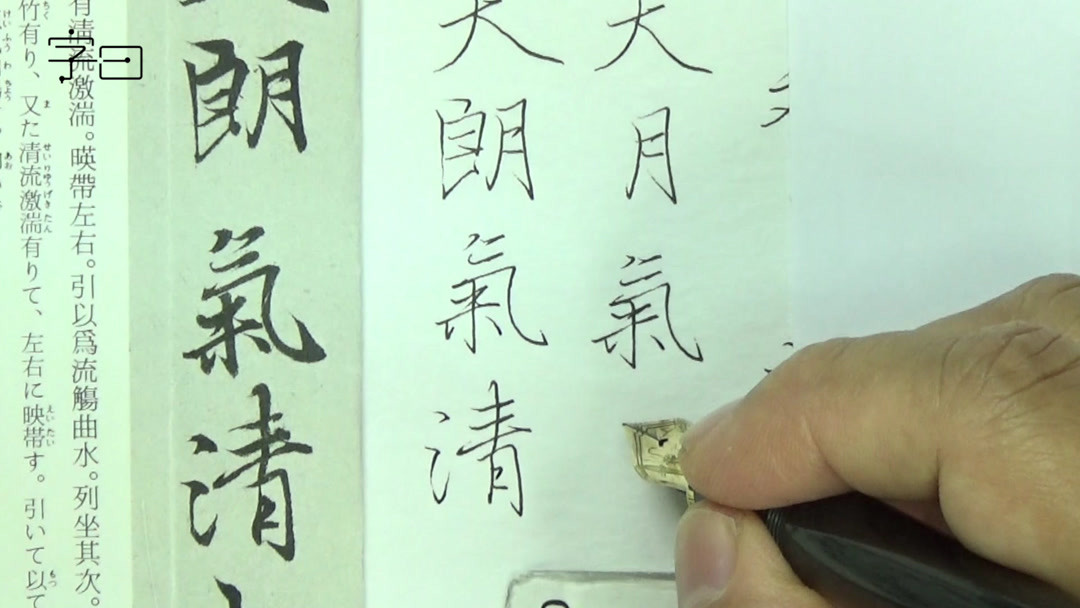 天月氣
天朗氣清
朗氣清
有清流激湍。暎帶左右。引以爲流觴曲水。列坐其次。
竹有り、又た清流激湍有りて、左右に映帯す。引いて以て
字日